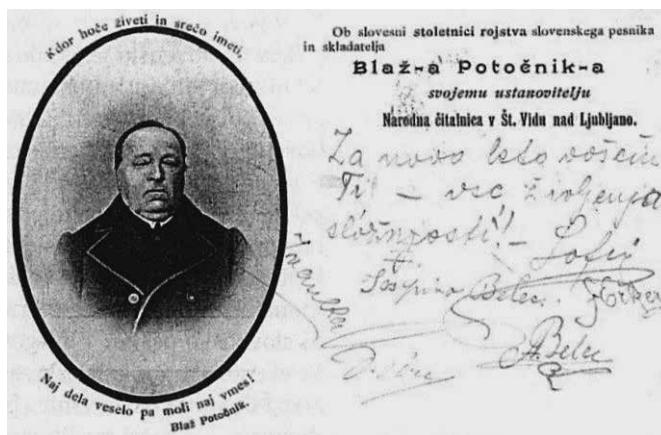 Kdor hoče živeti in srečo imeti,
Naj dela veselo pa moli naj vmes!
Blaž Potočnik.
Ob slovesni stoletnici rojstva slovenskega pesnika
in skladatelja
Blaž-a Potočnik-a
svojemu ustanovitelju
Narodna čitalnica v Št. Vidu nad Ljubljano.
Za novo leto voščim
Ti – vse življenja
Belec
A Belec